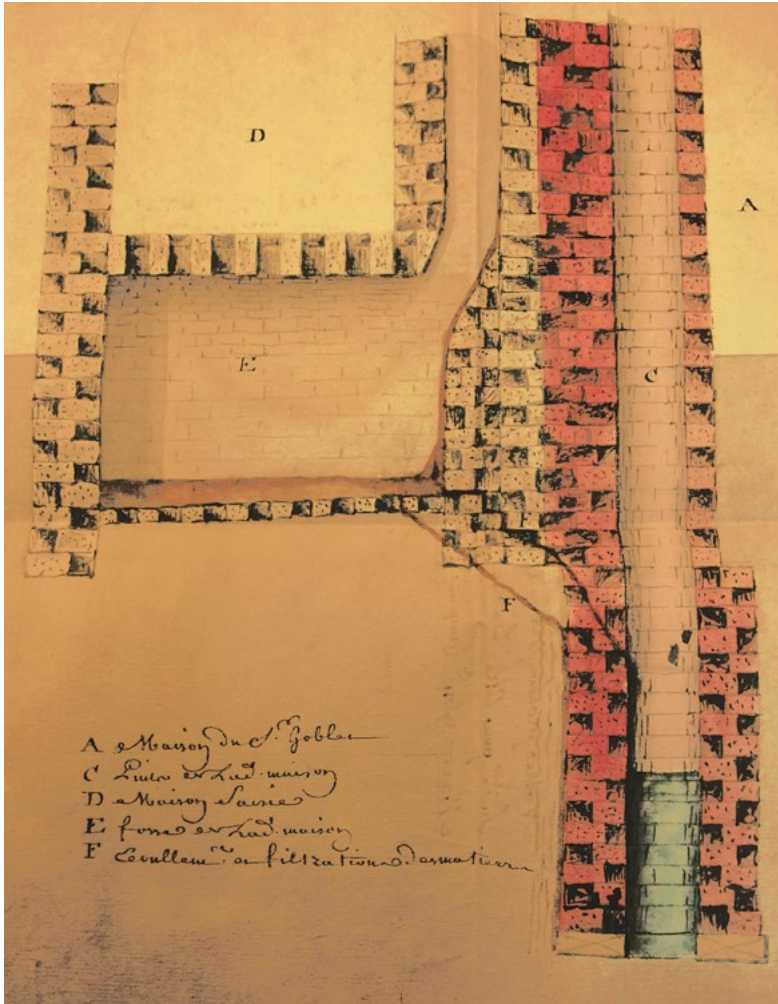 D
A
E
C
F
A Maison du Sr. Goblet
C Puits de lad. maison
D Maison Saisie
E fosse de lad. maison
F Ecoullemt. et filtration des matieres